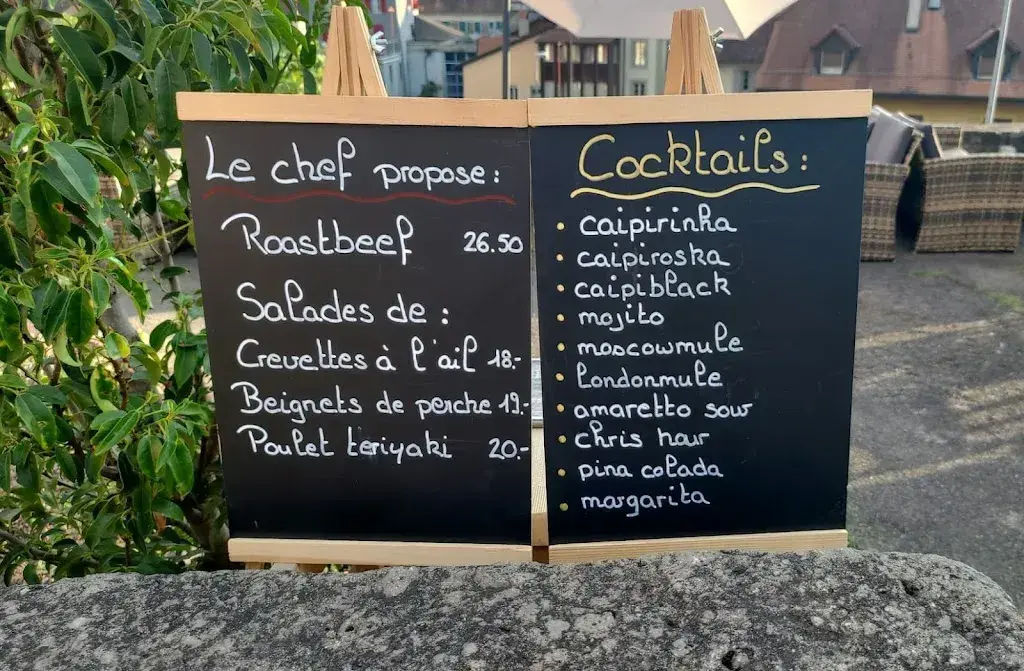 Le chef propose:
Roastbeef 26.50
Salades de:
Crevettes à l'ail 18.-
Beignets de perche 19.-
Poulet teriyaki 20.-
Cocktails:
• caipirinha
• caipiroska
• caipiblack
• mojito
• moscowmule
• londonmule
• amaretto sour
• chris hour
• pina colada
• margarita